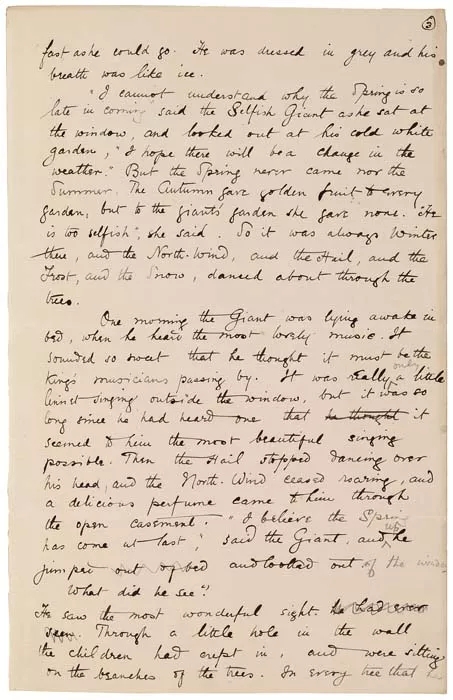 3
fast as he could go. He was dressed in grey and his
breath was like ice.
"I cannot understand why the Spring is so
late in coming" said the Selfish Giant as he sat at
the window, and looked out at his cold white
garden, "I hope there will be a change in the
weather." But the Spring never came nor the
Summer. The Autumn gave golden fruit to every
garden, but to the giant's garden she gave none. "He
is too selfish", she said. So it was always Winter
there, and the North-Wind, and the Hail, and the
Frost, and the Snow, danced about through the
trees.
One morning the Giant was lying awake in
bed, when he heard the most lovely music. It
sounded so sweet that he thought it must be the
King's musicians passing by. It was really only a little
linnet singing outside the window, but it was so
long since he had heard one that he thought it
seemed to him the most beautiful singing
possible. Then the Hail stopped dancing over
his head, and the North-Wind ceased roaring, and
a delicious perfume came to him through
the open casement. "I believe the Spring
has come at last", said the Giant, and up he
jumped out of bed and looked out of the window
What did he see?
He saw the most wonderful sight. he had ever
seen. Through a little hole in the wall
the children had crept in, and were sitting
on the branches of the trees. In every tree that he